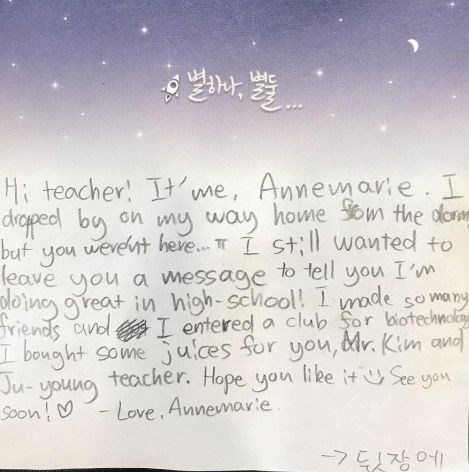 별하나, 별둘...
Hi teacher! It'me, Annemarie. I
dropped by on my way home from the dorm
but you weren't here... ㅠ I still wanted to
leave you a message to tell you I'm
doing great in high-school! I made so many
friends and I entered a club for biotechnology
I bought some juices for you, Mr. Kim and
Ju-young teacher. Hope you like it See you
soon! ♡ - Love, Annemarie.
→ 뒷장에